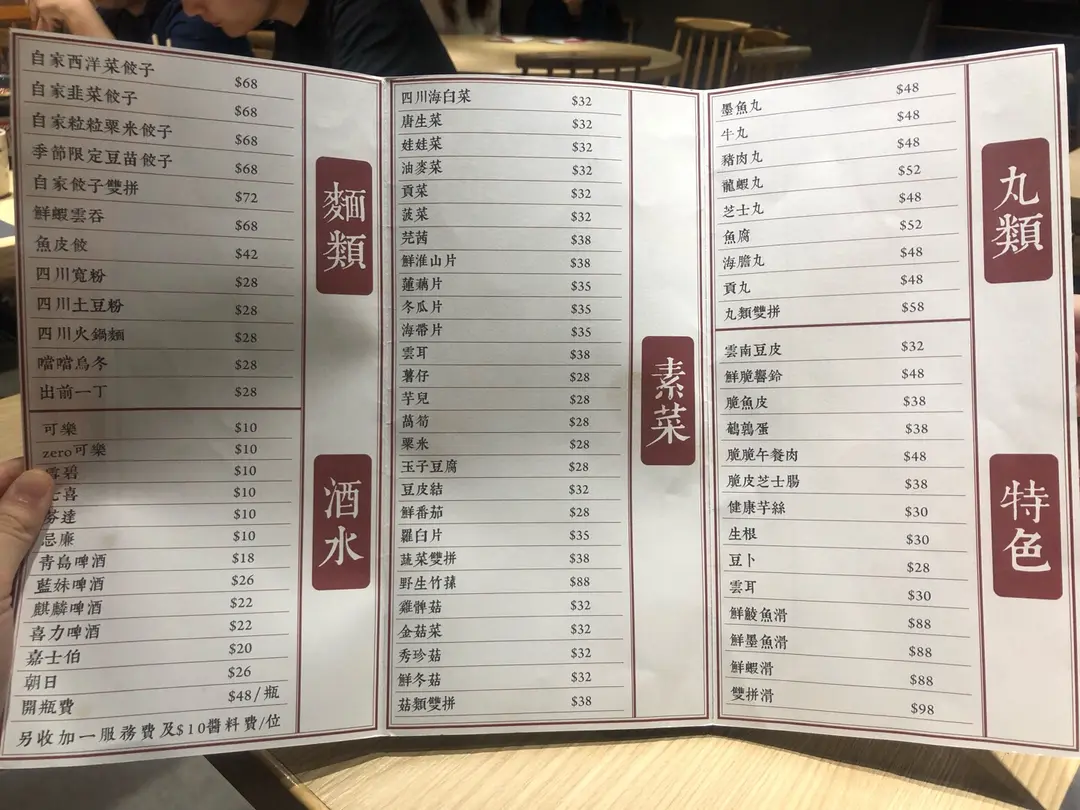 麵類
自家西洋菜餃子 $68
自家韭菜餃子 $68
自家粒粒粟米餃子 $68
季節限定豆苗餃子 $68
自家餃子雙拼 $72
鮮蝦雲吞 $68
魚皮餃 $42
四川寬粉 $28
四川土豆粉 $28
四川火鍋麵 $28
噹噹烏冬 $28
出前一丁 $28
酒水
可樂 $10
zero可樂 $10
雪碧 $10
七喜 $10
芬達 $10
忌廉 $10
青島啤酒 $18
藍妹啤酒 $26
麒麟啤酒 $22
喜力啤酒 $22
嘉士伯 $20
朝日 $26
開瓶費 $48/瓶
另收加一服務費及$10醬料費/位
素菜
四川海白菜 $32
唐生菜 $32
娃娃菜 $32
油麥菜 $32
貢菜 $32
菠菜 $32
芫茜 $38
鮮淮山片 $38
蓮藕片 $35
冬瓜片 $35
海帶片 $35
雲耳 $38
薯仔 $28
芋兒 $28
萵筍 $28
粟米 $28
玉子豆腐 $28
豆皮結 $32
鮮番茄 $28
羅白片 $35
蔬菜雙拼 $38
野生竹蓀 $88
雞髀菇 $32
金菇菜 $32
秀珍菇 $32
鮮冬菇 $32
菇類雙拼 $38
丸類
墨魚丸 $48
牛丸 $48
豬肉丸 $48
龍蝦丸 $52
芝士丸 $48
魚腐 $52
海膽丸 $48
貢丸 $48
丸類雙拼 $58
特色
雲南豆皮 $32
鮮脆響鈴 $48
脆魚皮 $38
鵪鶉蛋 $38
脆脆午餐肉 $48
脆皮芝士腸 $38
健康芋絲 $30
生根 $30
豆卜 $28
雲耳 $30
鮮鯪魚滑 $88
鮮墨魚滑 $88
鮮蝦滑 $88
雙拼滑 $98